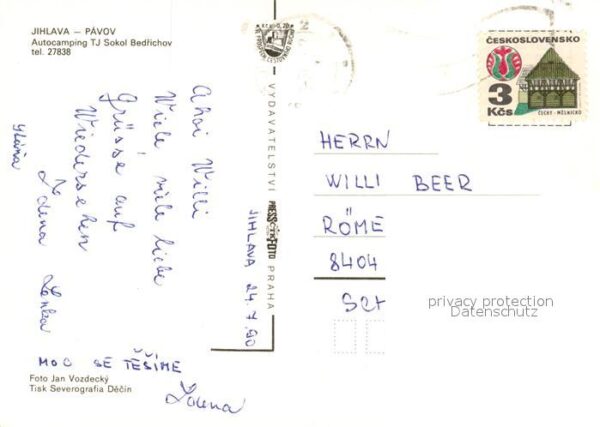 JIHLAVA — PÁVOV
Autocamping TJ Sokol Bedřichov
tel. 27838
Ahoi Willi
Viele, viele liebe
Grüsse auf
Wiedersehen
Zdena Lenka
MOC SE TĚŠÍME
Zdena
Foto Jan Vozdecký
Tisk Severografia Děčín
VYDAVATELSTVÍ PRESSFOTO PRAHA
JIHLAVA 24.7.90
ČESKOSLOVENSKO
3
Kčs
ČECHY - MĚLNICKO
HERRN
WILLI BEER
RÖME
8404
privacy protection
Datenschutz